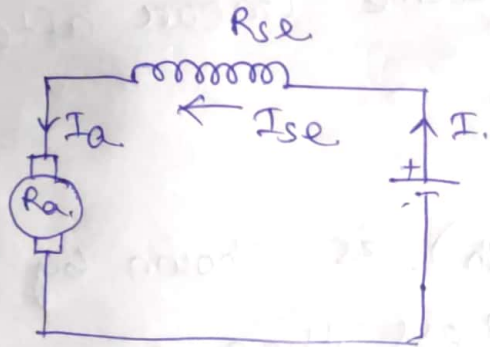 Rse
Ia
Ise
I.
Ra.
+
-